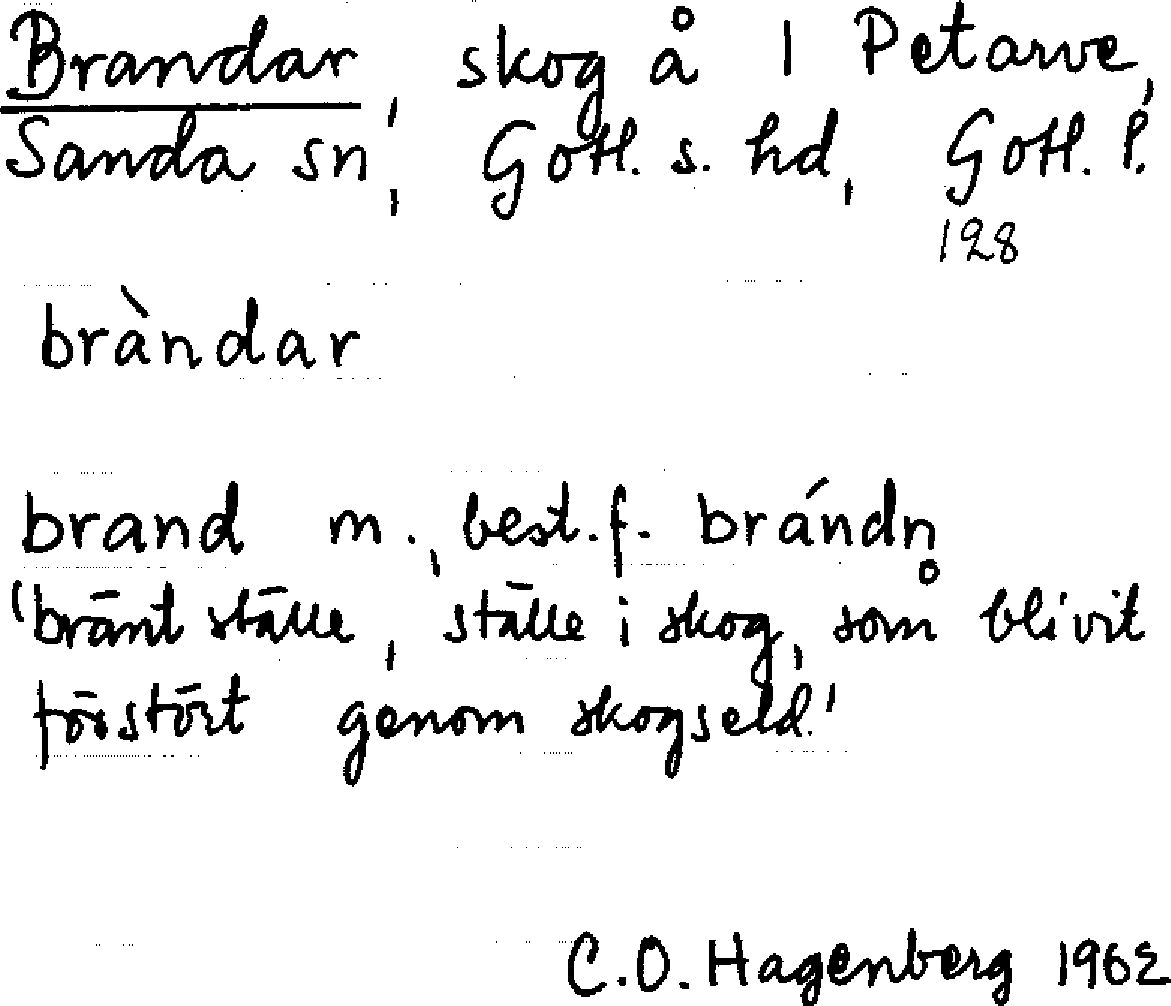 Brandar, skog å 1 Petarve,
Sanda sn, Gotl. s. hd, Gotl. l.
128
bràndar
brand m., best. f. brándn̥
'bränt ställe, ställe i skog, som blivit
förstört genom skogseld.'
C.O. Hagenberg 1962